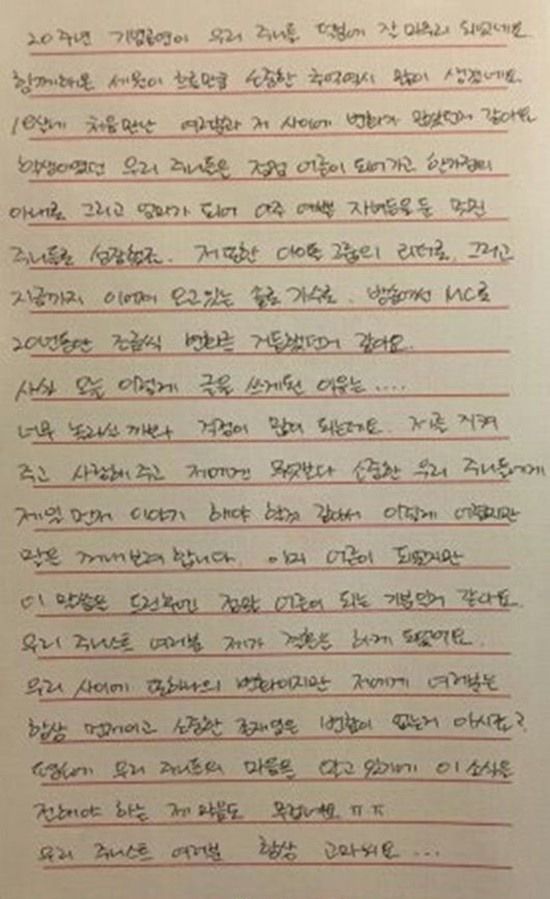 20주년 기념공연이 우리 주니들 덕분에 잘 마무리 되었네요
함께해온 세월이 흐른만큼 소중한 추억역시 많이 생겼네요.
18살에 처음만난 여러분과 저 사이에 변화가 많았던거 같아요
학생이였던 우리 주니들은 점점 어른이 되어가고 한가정의
아내로 그리고 엄마가 되어 아주 예쁜 자녀들을 둔 멋진
주니들로 성장했죠. 저 또한 아이돌 그룹의 리더로. 그리고
지금까지 이어져 오고있는 솔로 가수로. 방송에선 MC로
20년동안 조금씩 변화를 거듭했던거 같아요.
사실 오늘 이렇게 글을 쓰게된 이유는....
너무 놀라실까봐 걱정이 많이 되는데요. 저를 지켜
주고 사랑해주고 저에겐 무엇보다 소중한 우리 주니들에게
제일 먼저 이야기 해야 할것 같아서 이렇게 어렵지만
말을 꺼내보려 합니다. 이미 어른이 되었지만
이 말씀은 드린후엔 정말 어른이 되는 기분인거 같아요.
우리 주니스트 여러분 제가 결혼을 하게 되었어요.
우리 사이에 또하나의 변화이지만 저에게 여러분은
항상 먼저이고 소중한 존재임은 변함이 없는거 아시죠?
우리 주니들의 마음을 알고 있기에 이 소식을
전해야 하는 제 마음도 무겁네요 ㅠㅠ
우리 주니스트 여러분 항상 고마워요 ...